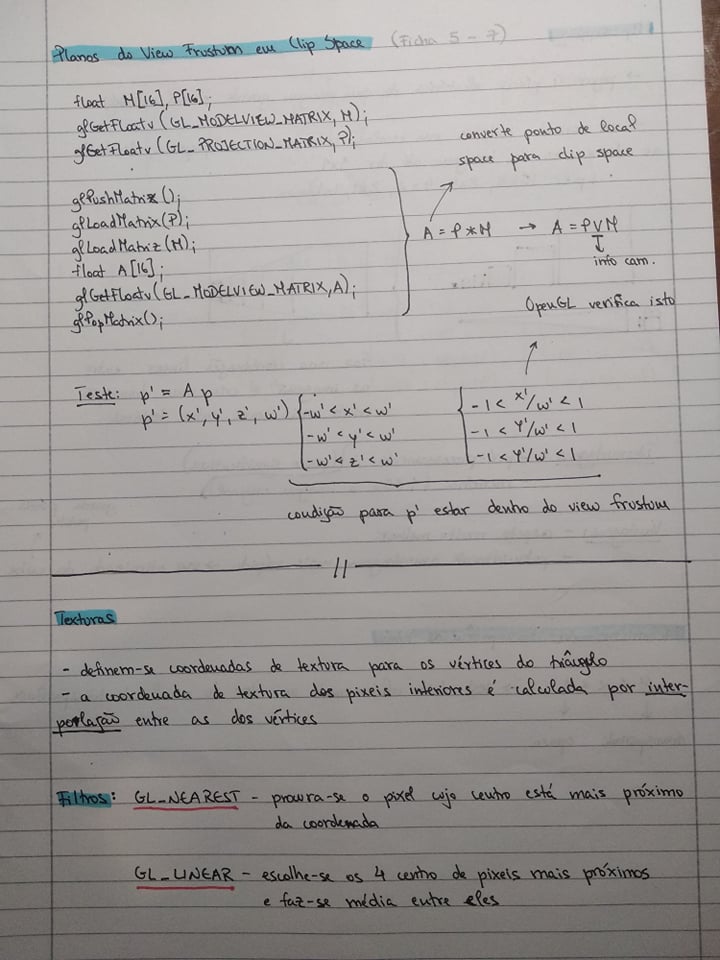 Planos do View Frustum em Clip Space (Ficha 5 - 7)
float M[16], P[16];
glGetFloatv (GL_MODELVIEW_MATRIX, M);
glGetFloatv (GL_PROJECTION_MATRIX, P);
converte ponto de local
space para clip space
glPushMatrix();
glLoadMatrix(P);
glLoadMatrix(M);
float A[16];
glGetFloatv(GL_MODELVIEW_MATRIX, A);
glPopMatrix();
A = P * M → A = PVM
info cam.
OpenGL verifica isto
Teste: p' = A p
p' = (x', y', z', w') { -w' < x' < w'
-w' < y' < w'
-w' < z' < w'
{ -1 < x'/w' < 1
-1 < Y'/w' < 1
-1 < Y'/w' < 1
condição para p' estar dentro do view frustum
//
Texturas
- definem-se coordenadas de textura para os vértices do triângulo
- a coordenada de textura dos pixeis interiores é calculada por inter-
porlação entre as dos vértices
Filtros: GL_NEAREST - procura-se o pixel cujo centro está mais próximo
da coordenada
GL_LINEAR - escolhe-se os 4 centro de pixeis mais próximos
e faz-se média entre eles